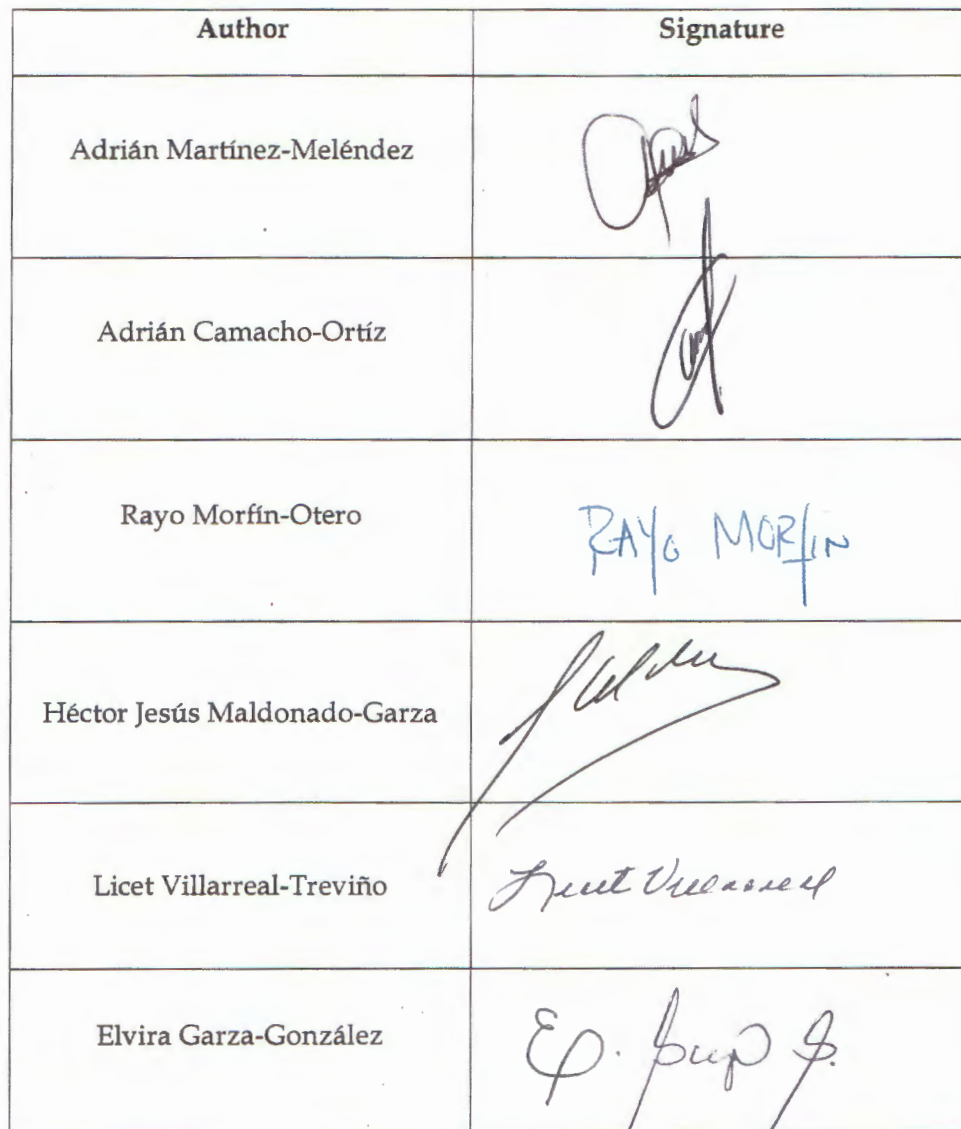 Author Signature
Adrián Martínez-Meléndez
Adrián Camacho-Ortíz
Rayo Morfín-Otero RAYO MORFIN
Héctor Jesús Maldonado-Garza
Licet Villarreal-Treviño Licet Villarreal
Elvira Garza-González